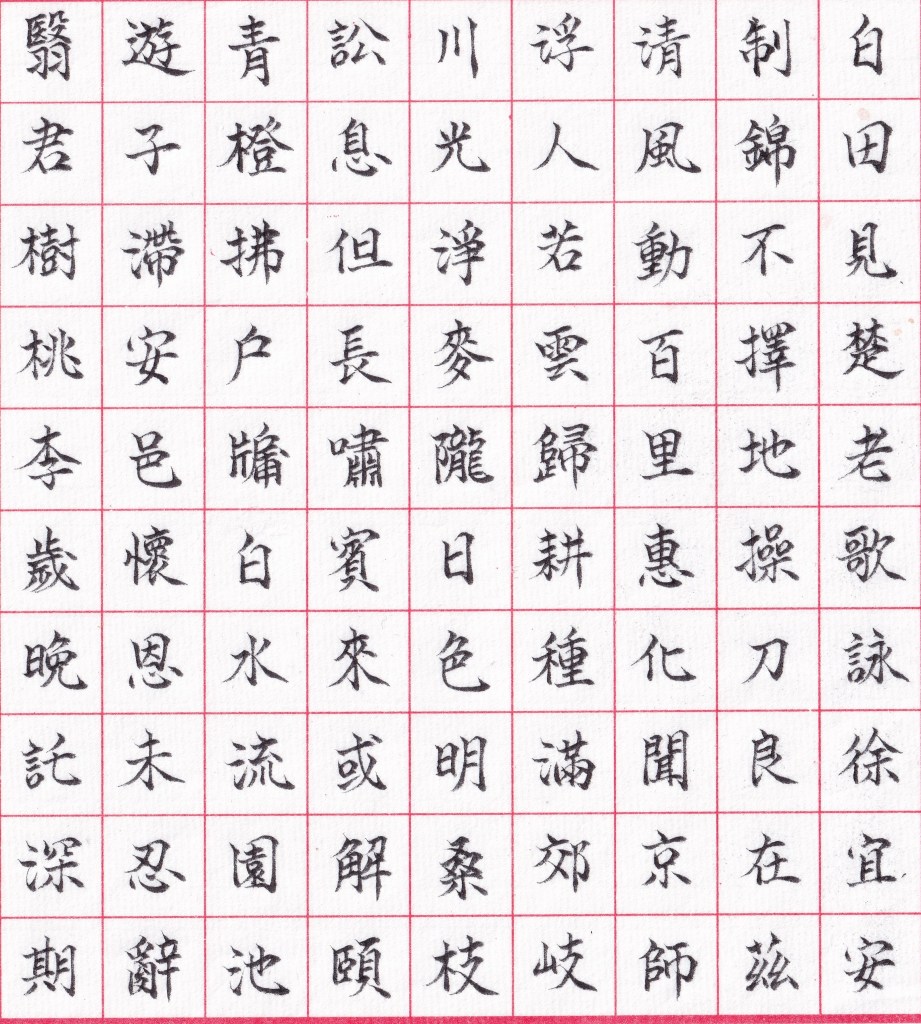 白田見楚老歌詠徐宜安
制錦不擇地操刀良在茲
清風動百里惠化聞京師
浮人若雲歸耕種滿郊岐
川光淨麥隴日色明桑枝
訟息但長嘯賓來或解頤
青橙拂户牖白水流園池
遊子滯安邑懷恩未忍辭
翳君樹桃李歲晚託深期